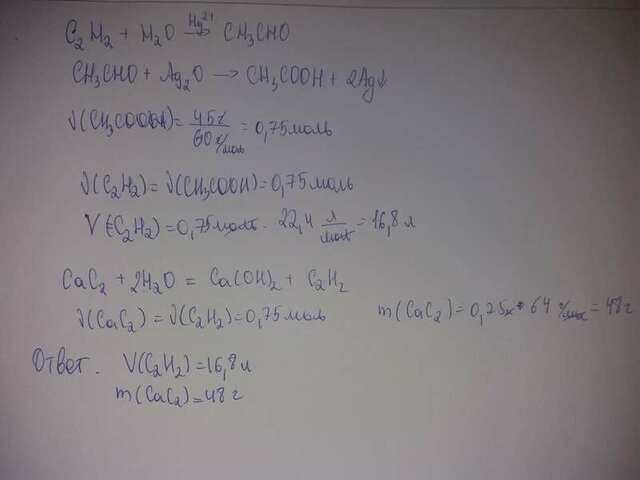 C₂H₂ + H₂O →(Hg²⁺) CH₃CHO
CH₃CHO + Ag₂O → CH₃COOH + 2Ag↓
ν(CH₃COOH) = 45г / 60 г/моль = 0,75 моль
ν(C₂H₂) = ν(CH₃COOH) = 0,75 моль
V(C₂H₂) = 0,75 моль · 22,4 л/моль = 16,8 л
CaC₂ + 2H₂O = Ca(OH)₂ + C₂H₂
ν(CaC₂) = ν(C₂H₂) = 0,75 моль m(CaC₂) = 0,75м * 64 г/моль = 48 г
Ответ. V(C₂H₂) = 16,8 л
m(CaC₂) = 48 г